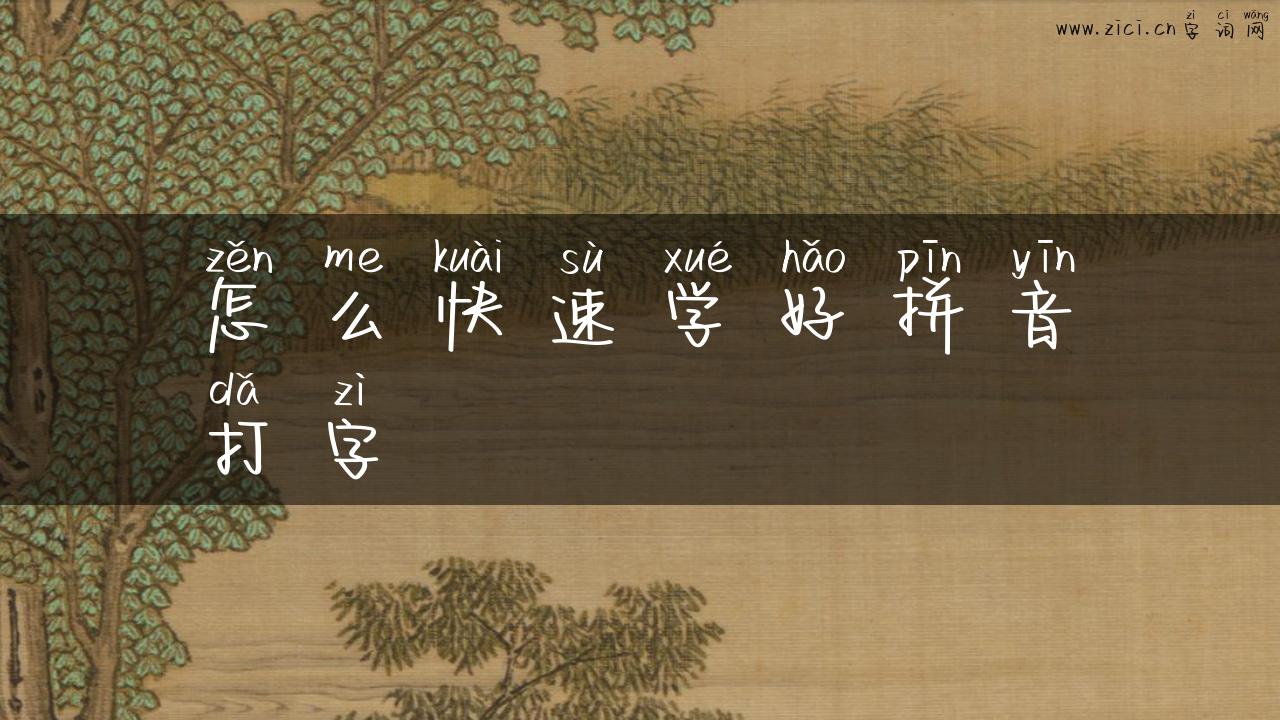 zì cí wǎng
www.zici.cn字词网
zěn me kuài sù xué hǎo pīn yīn
怎么快速学好拼音
dǎ zì
打字